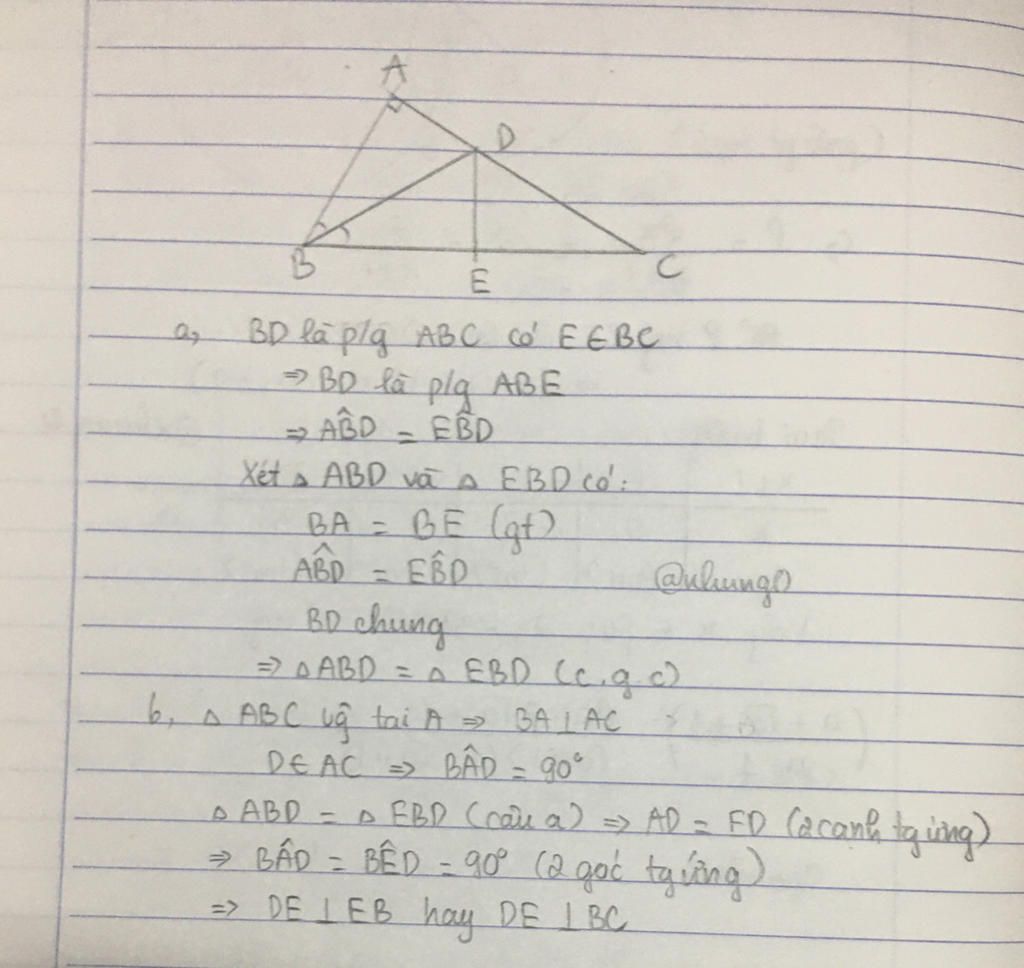 A
D
B
E
C
a, BD là p/g ABC có E∈BC
⇒ BD là p/g ABE
⇒ AB̂D = EB̂D
Xét △ ABD và △ EBD có:
BA = BE (gt)
AB̂D = EB̂D @nhung
BD chung
⇒ △ABD = △ EBD (c.g.c)
b, △ ABC vg tại A ⇒ BA⊥AC
D∈AC ⇒ BÂD = 90°
△ ABD = △ EBD (câu a) ⇒ AD = ED (2 cạnh tg ứng)
⇒ BÂD = BÊD = 90° (2 góc tg ứng)
⇒ DE⊥EB hay DE⊥BC